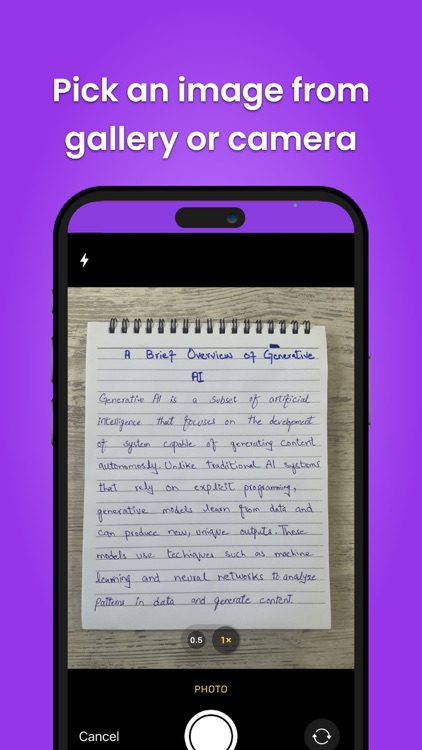 Pick an image from
gallery or camera
A Brief Overview of Generative
AI
Generative AI is a subset of artificial
intelligence that focuses on the development
of system capable of generating content
autonomosly. Unlike traditional AI systems
that rely on explicit programming,
generative models learn from data and
can produce new, unique outputs. These
models use techiques such as machine
learning and neural networks to analyze
patterns in data and generate content.
0.5 1×
PHOTO
Cancel